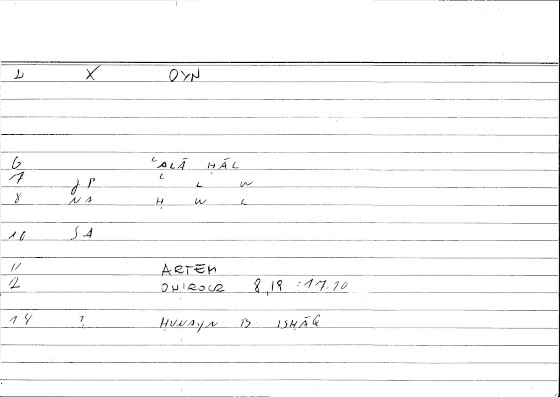 2 X DYN
6 ʿALĀ ḤĀL
7 ʿ L W
gP
8 NA Ḥ W L
10 SA
11 ARTEM
12 ONIROCR 8,19 :17.10
14 ? ḤUNAYN B ISḤĀQ